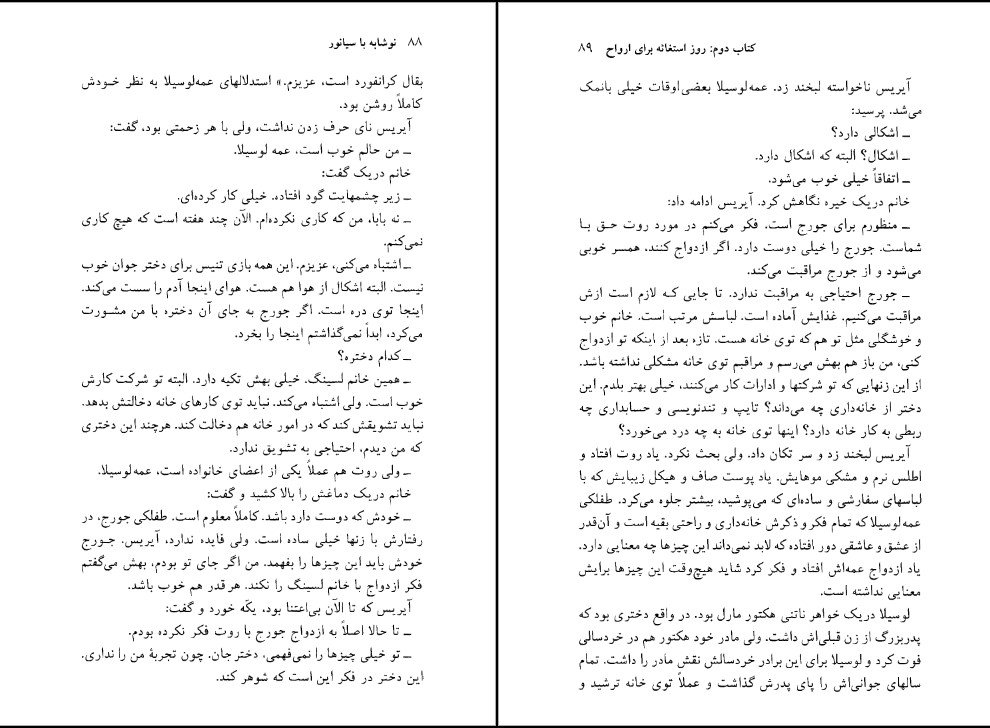 ۸۸ نوشابه با سیانور
بقال کرانفورد است، عزیزم.» استدلالهای عمه‌لوسیلا به نظر خودش
کاملاً روشن بود.
آیریس نای حرف زدن نداشت، ولی با هر زحمتی بود، گفت:
ــ من حالم خوب است، عمه لوسیلا.
خانم دریک گفت:
ــ زیر چشمهایت گود افتاده. خیلی کار کرده‌ای.
ــ نه بابا، من که کاری نکرده‌ام. الآن چند هفته است که هیچ کاری
نمی‌کنم.
ــ اشتباه می‌کنی، عزیزم. این همه بازی تنیس برای دختر جوان خوب
نیست. البته اشکال از هوا هم هست. هوای اینجا آدم را سست می‌کند.
اینجا توی دره است. اگر جورج به جای آن دختره با من مشورت
می‌کرد، ابداً نمی‌گذاشتم اینجا را بخرد.
ــ کدام دختره؟
ــ همین خانم لسینگ. خیلی بهش تکیه دارد. البته تو شرکت کارش
خوب است. ولی اشتباه می‌کند. نباید توی کارهای خانه دخالتش بدهد.
نباید تشویقش کند که در امور خانه هم دخالت کند. هرچند این دختری
که من دیدم، احتیاجی به تشویق ندارد.
ــ ولی روت هم عملاً یکی از اعضای خانواده است، عمه‌لوسیلا.
خانم دریک دماغش را بالا کشید و گفت:
ــ خودش که دوست دارد باشد. کاملاً معلوم است. طفلکی جورج، در
رفتارش با زنها خیلی ساده است. ولی فایده ندارد، آیریس. جورج
خودش باید این چیزها را بفهمد. من اگر جای تو بودم، بهش می‌گفتم
فکر ازدواج با خانم لسینگ را نکند. هرقدر هم خوب باشد.
آیریس که تا الآن بی‌اعتنا بود، یکّه خورد و گفت:
ــ تا حالا اصلاً به ازدواج جورج با روت فکر نکرده بودم.
ــ تو خیلی چیزها را نمی‌فهمی، دخترجان. چون تجربهٔ من را نداری.
این دختر در فکر این است که شوهر کند.
کتاب دوم: روز استغاثه برای ارواح ۸۹
آیریس ناخواسته لبخند زد. عمه‌لوسیلا بعضی‌اوقات خیلی بانمک
می‌شد. پرسید:
ــ اشکالی دارد؟
ــ اشکال؟ البته که اشکال دارد.
ــ اتفاقاً خیلی خوب می‌شود.
خانم دریک خیره نگاهش کرد. آیریس ادامه داد:
ــ منظورم برای جورج است. فکر می‌کنم در مورد روت حق با
شماست. جورج را خیلی دوست دارد. اگر ازدواج کنند، همسر خوبی
می‌شود و از جورج مراقبت می‌کند.
ــ جورج احتیاجی به مراقبت ندارد. تا جایی که لازم است ازش
مراقبت می‌کنیم. غذایش آماده است. لباسش مرتب است. خانم خوب
و خوشگلی مثل تو هم که توی خانه هست. تازه بعد از اینکه تو ازدواج
کنی، من باز هم بهش می‌رسم و مراقبم توی خانه مشکلی نداشته باشد.
از این زنهایی که تو شرکتها و ادارات کار می‌کنند، خیلی بهتر بلدم. این
دختر از خانه‌داری چه می‌داند؟ تایپ و تندنویسی و حسابداری چه
ربطی به کار خانه دارد؟ اینها توی خانه به چه درد می‌خورد؟
آیریس لبخند زد و سر تکان داد. ولی بحث نکرد. یاد روت افتاد و
اطلس نرم و مشکی موهایش. یاد پوست صاف و هیکل زیبایش که با
لباسهای سفارشی و ساده‌ای که می‌پوشید، بیشتر جلوه می‌کرد. طفلکی
عمه‌لوسیلا که تمام فکر و ذکرش خانه‌داری و راحتی بقیه است و آن‌قدر
از عشق و عاشقی دور افتاده که لابد نمی‌داند این چیزها چه معنایی دارد.
یاد ازدواج عمه‌اش افتاد و فکر کرد شاید هیچ‌وقت این چیزها برایش
معنایی نداشته است.
لوسیلا دریک خواهر ناتنی هکتور مارل بود. در واقع دختری بود که
پدربزرگ از زن قبلی‌اش داشت. ولی مادر خود هکتور هم در خردسالی
فوت کرد و لوسیلا برای این برادر خردسالش نقش مادر را داشت. تمام
سالهای جوانی‌اش را پای پدرش گذاشت و عملاً توی خانه ترشید و